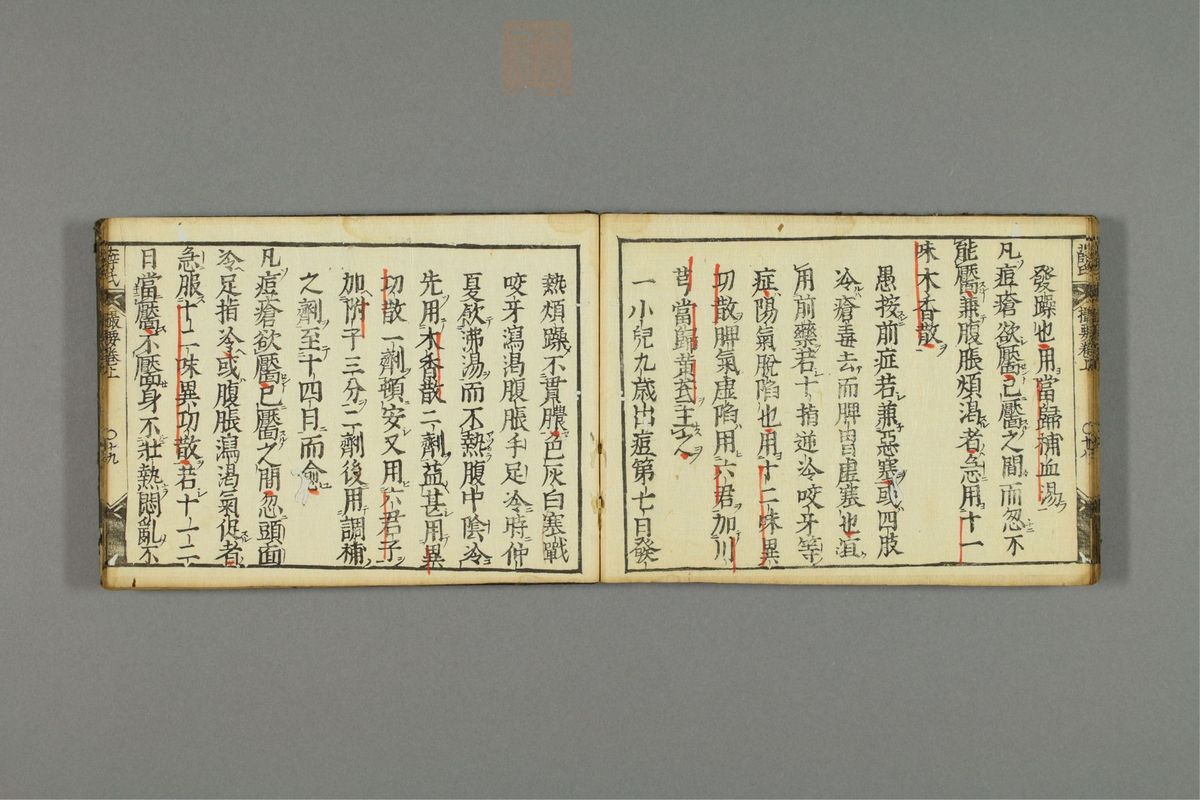 發躁也用當歸補血湯
凡痘瘡欲靨已靨之間而忽不
能靨兼腹脹煩渴者急用十一
味木香散
愚按前症若兼惡寒或四肢
冷瘡毒去而脾胃虛寒也宜
用前藥若十指逆冷咬牙等
症陽氣脫陷也用十二味異
切散脾氣虛陷用六君加川
芎當歸黃芪主之
一小兒九歲出痘第七日發
熱煩躁不貫膿色灰白寒戰
咬牙瀉渴腹脹手足冷時仲
夏飲沸湯而不熱腹中陰冷
先用木香散二劑益甚用異
切散一劑頓安又用六君子
加附子三分二劑後用調補
之劑至十四日而愈
凡痘瘡欲靨已靨之間忽頭面
冷足指冷或腹脹瀉渴氣促者
急服十二味異切散若十一二
日當靨不靨身不壯熱悶亂不